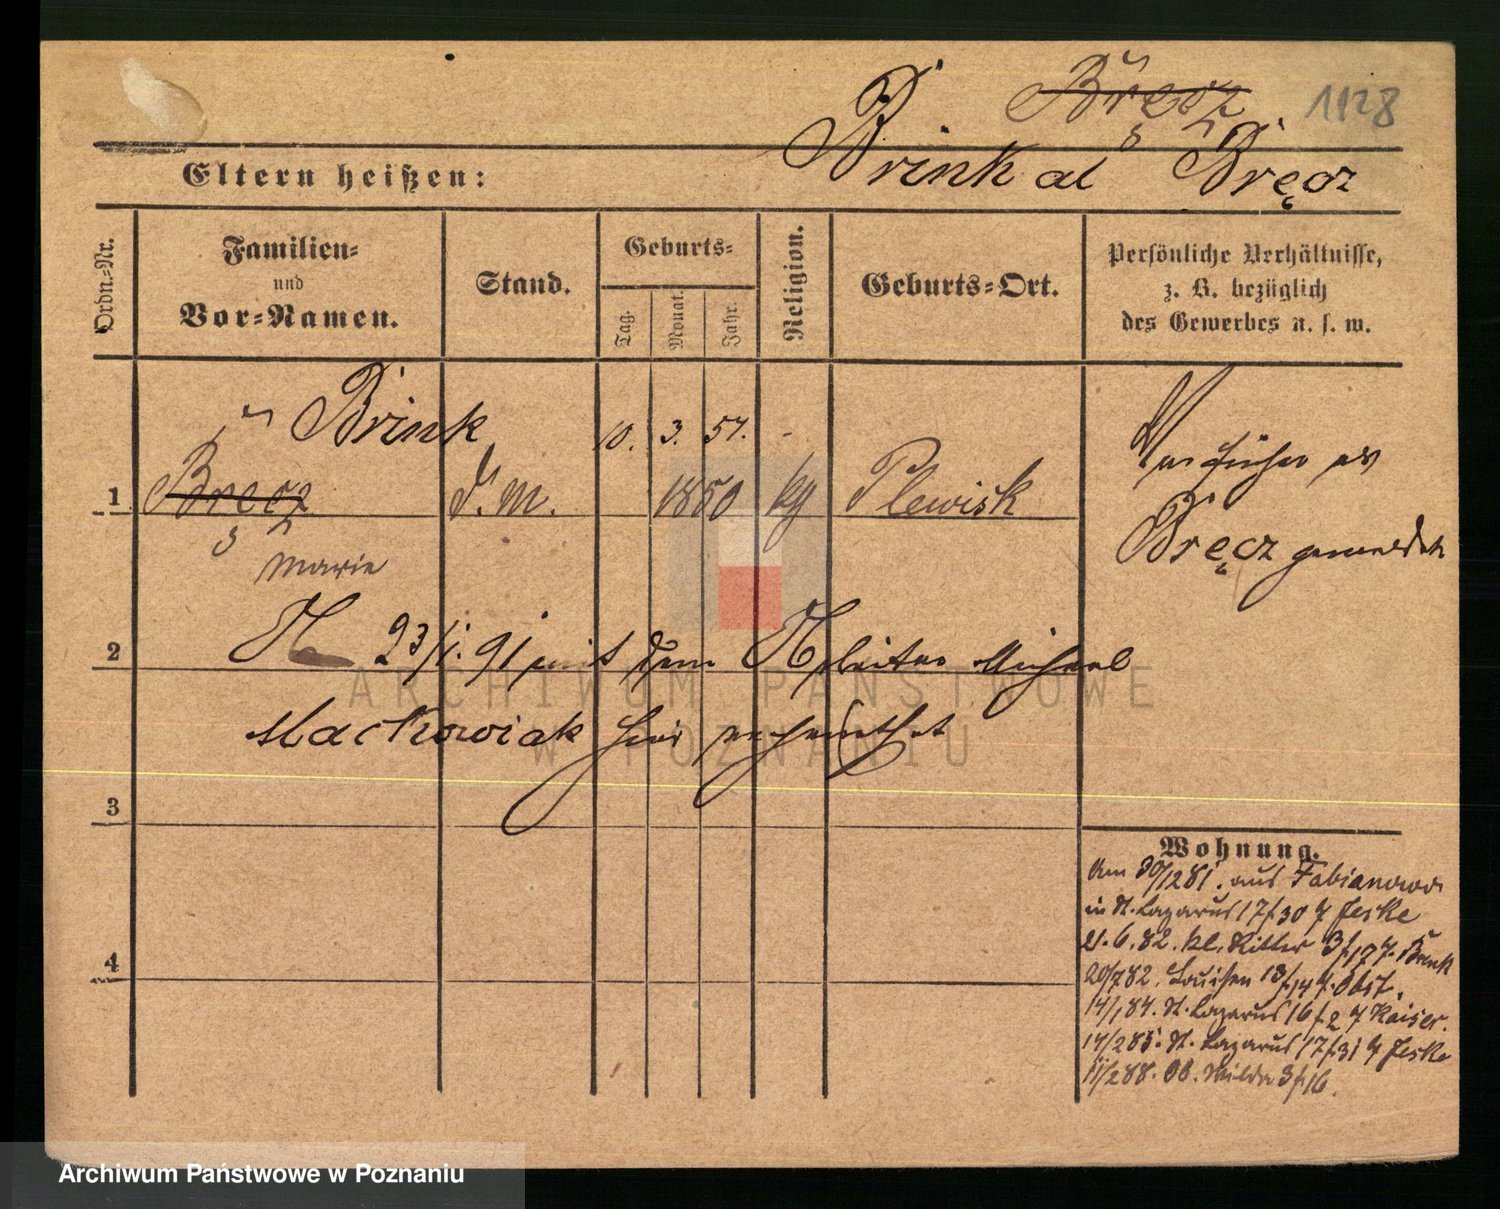 Bręcz
1128
Brink al Bręcz
Eltern heißen:
Ordn.-Nr.
Familien-
und
Vor-Namen.
Stand.
Geburts-
Tag.
Monat.
Jahr.
Religion.
Geburts-Ort.
Persönliche Verhältnisse,
z. B. bezüglich
des Gewerbes u. s. w.
Brink
10. 3. 57.
1 Bręcz d. M. 1850 kg Plewisk
Marie
War früher als
Bręcz gemeldet
2
23/1. 91 mit dem Michael
Mackowiak hier verheirathet
ARCHIWUM PAŃSTWOWE
W POZNANIU
3
4
Wohnung.
Am 30/12 81. aus Fabianowo
in St. Lazarus 17 f 30 Jeske
21. 6. 82. kl. Ritter 3 f 17 Brink
20/7 82. Louisen 13 f 14 Obst.
14/1 84. St. Lazarus 16 f 2 Kaiser.
14/2 85. St. Lazarus 17 f 31 Jeske
11/2 88. Ob. Wilda 3 f 16.
Archiwum Państwowe w Poznaniu